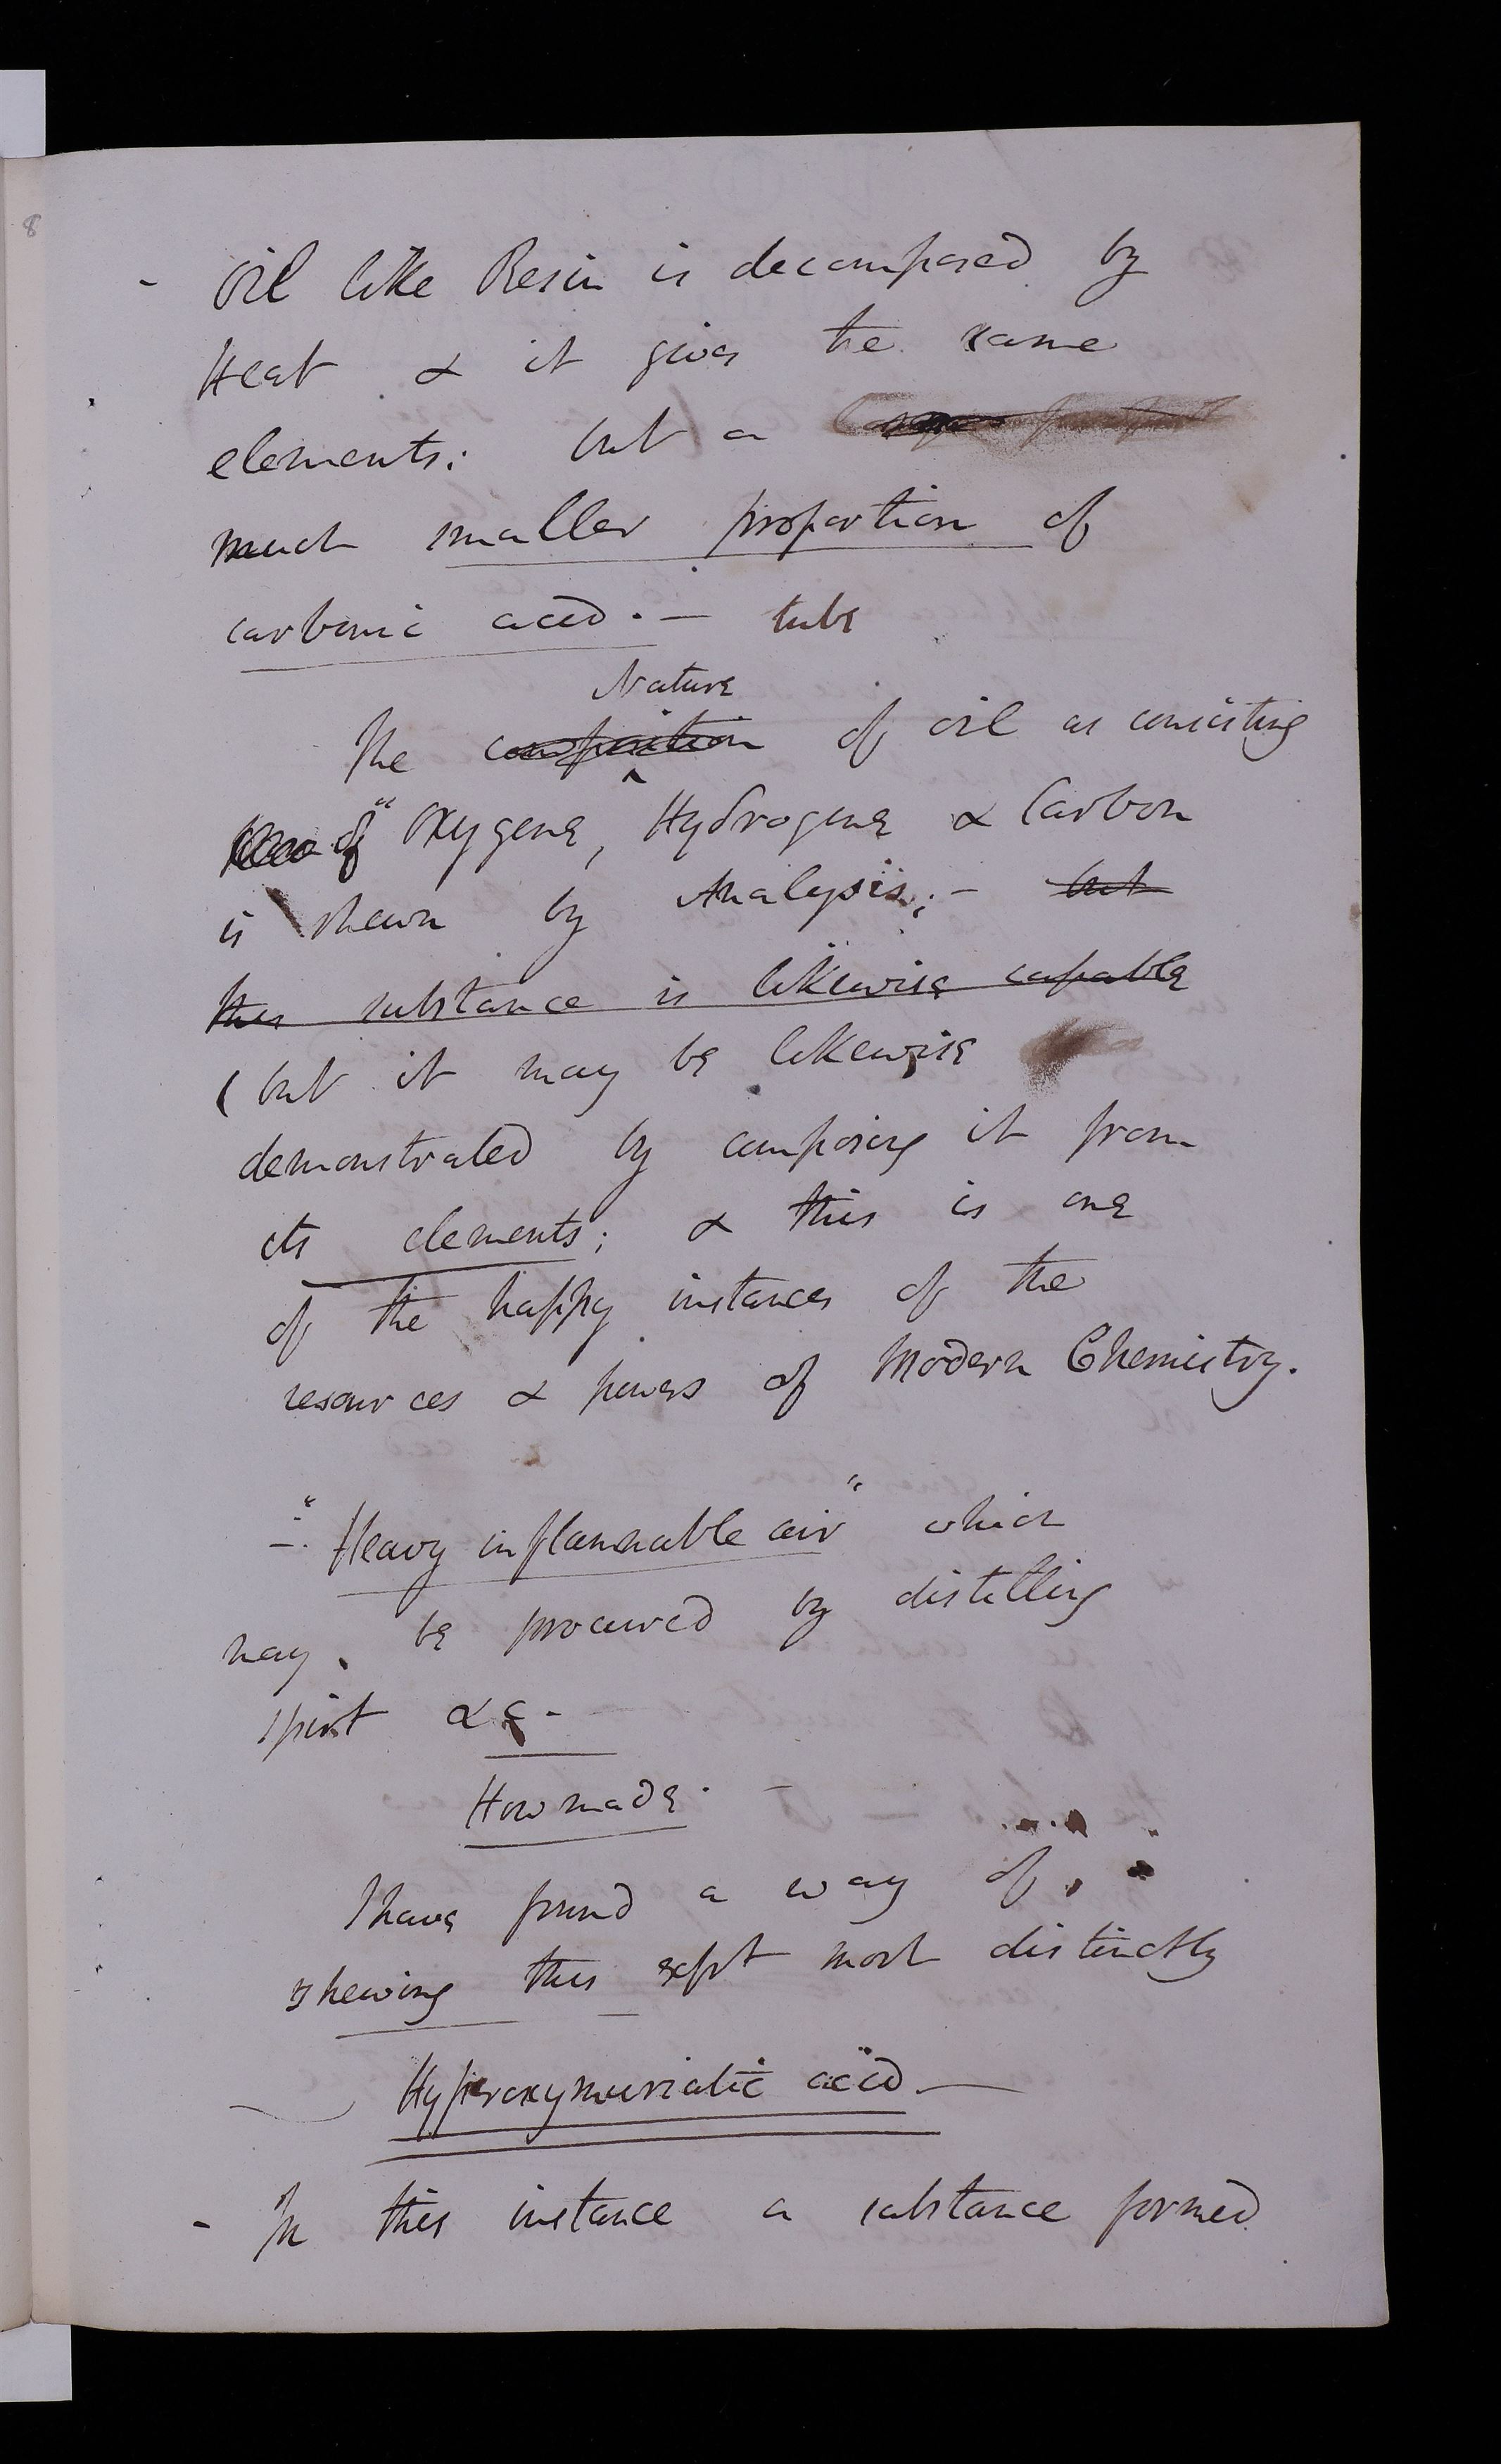 8
- Oil like Resin is decomposed by
Heat & it gives the same
elements: but a
much smaller proportion of
carbonic acid. - tube
Nature
The composition of oil as consisting
of "Oxygene, Hydrogene & Carbon
is shewn by Analysis; - but
this substance is likewise capable
( but it may be likewise
demonstrated by composing it from
its elements; & this is one
of the happy instances of the
resources & powers of Modern Chemistry.
-. "Heavy inflammable air" which
may be procured by distilling
spirit &c -
How made. -
I have found a way of
shewing this expt most distinctly
Hyperoxymuriatic acid. -
- In this instance a substance formed